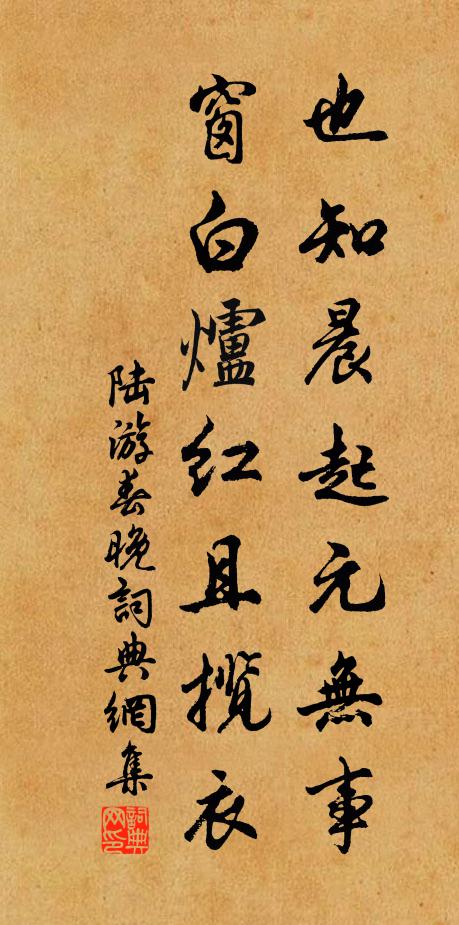 也知晨起元無事
窗白爐红且攬衣
陆游春晚詞典網集
詞典网印